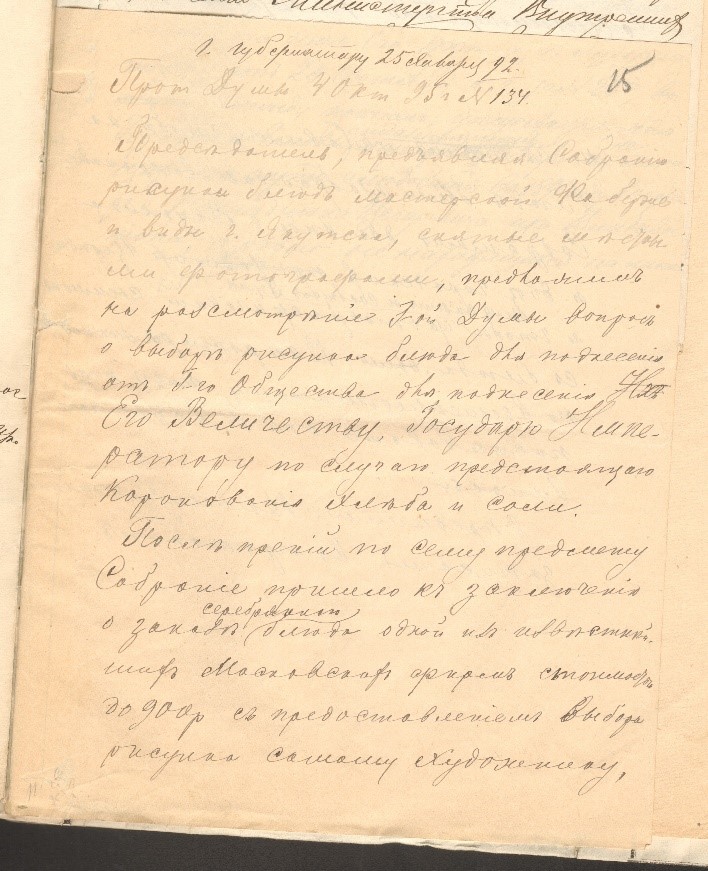 Министерства Внутренних
г. губернатору 25 января 92.
15
Прот Думы 4 Окт 95 г № 134.
Председатель, предъявляя Собранію
рисунки блюдъ мастерской Фаберже
и виды г. Якутска, снятые мѣстны
ми фотографами, предложилъ
на разсмотрѣніе Г-ой Думы вопросъ
о выборѣ рисунка блюда для поднесенія
отъ Г-го Общества для поднесенія
Его Величеству, Государю Импе-
ратору по случаю предстоящаго
Коронованія хлѣба и соли.
Послѣ преній по сему предмету
Собраніе пришло къ заключенію
серебрянаго
о заказѣ блюда одной изъ извѣстнѣй-
шихъ Московскихъ фирмъ стоимостью
до 900 р съ предоставленіемъ выбора
рисунка самому художнику,